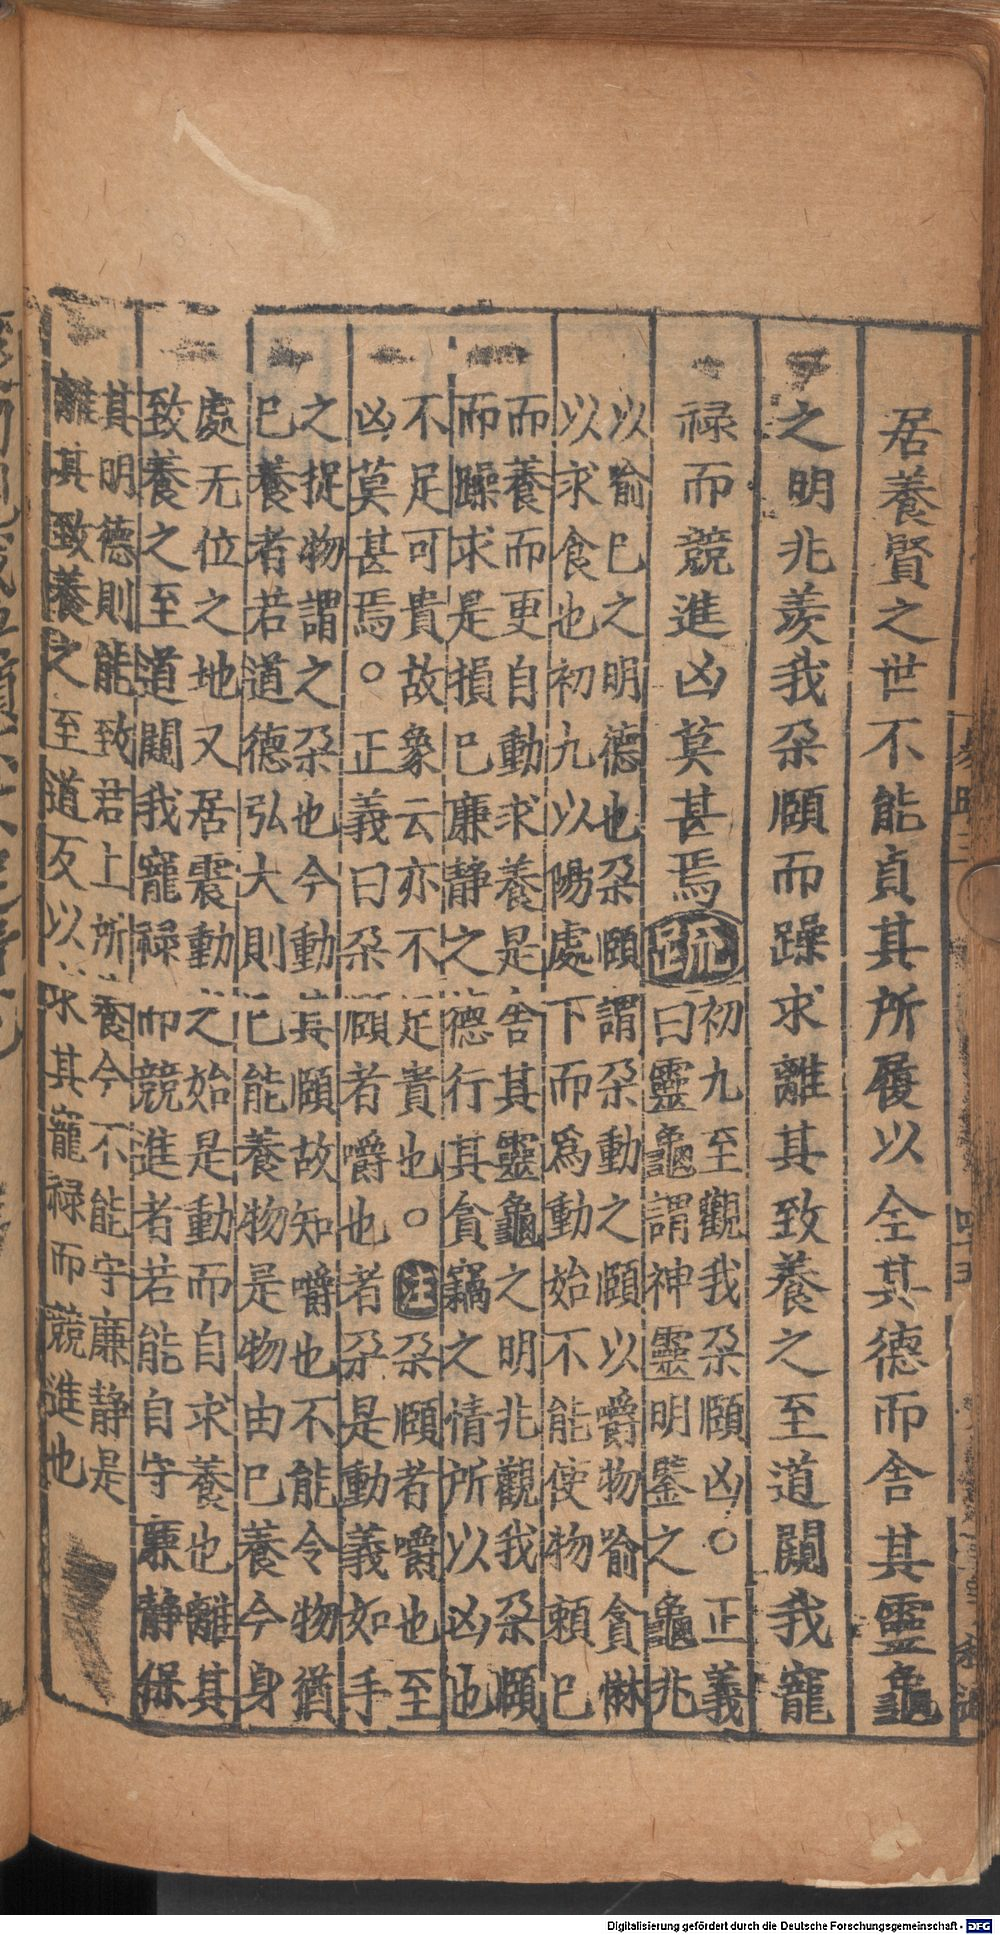 居養賢之世不能貞其所履以全其德而舍其靈龜
之明兆羨我朶頤而躁求離其致養之至道闚我寵
禄而競進凶莫甚焉疏
初九至觀我朶頤凶○正義
曰靈龜謂神靈明鑒之龜兆
以喻巳之明德也朶頤謂朶動之頤以嚼物喻貪惏
以求食也初九以陽處下而爲動始不能使物賴巳
而養而更自動求養是舍其靈龜之明兆觀我朶頤
而躁求是損巳廉静之德行其貪竊之情所以凶也
不足可貴故象云亦不足貴也○注朶頤者嚼也至
凶莫甚焉○正義曰朶頤者嚼也者朶是動義如手
之捉物謂之朶也今動其頤故知嚼也不能令物猶
巳養者若道德弘大則巳能養物是物由巳養今身
處无位之地又居震動之始是動而自求養也離其
致養之至道闚我寵禄而競進者若能自守廉静保
其明德則能致君上所養今不能守廉静是
離其致養之至道反以求其寵禄而競進也
Digitalisierung gefördert durch die Deutsche Forschungsgemeinschaft - DFG